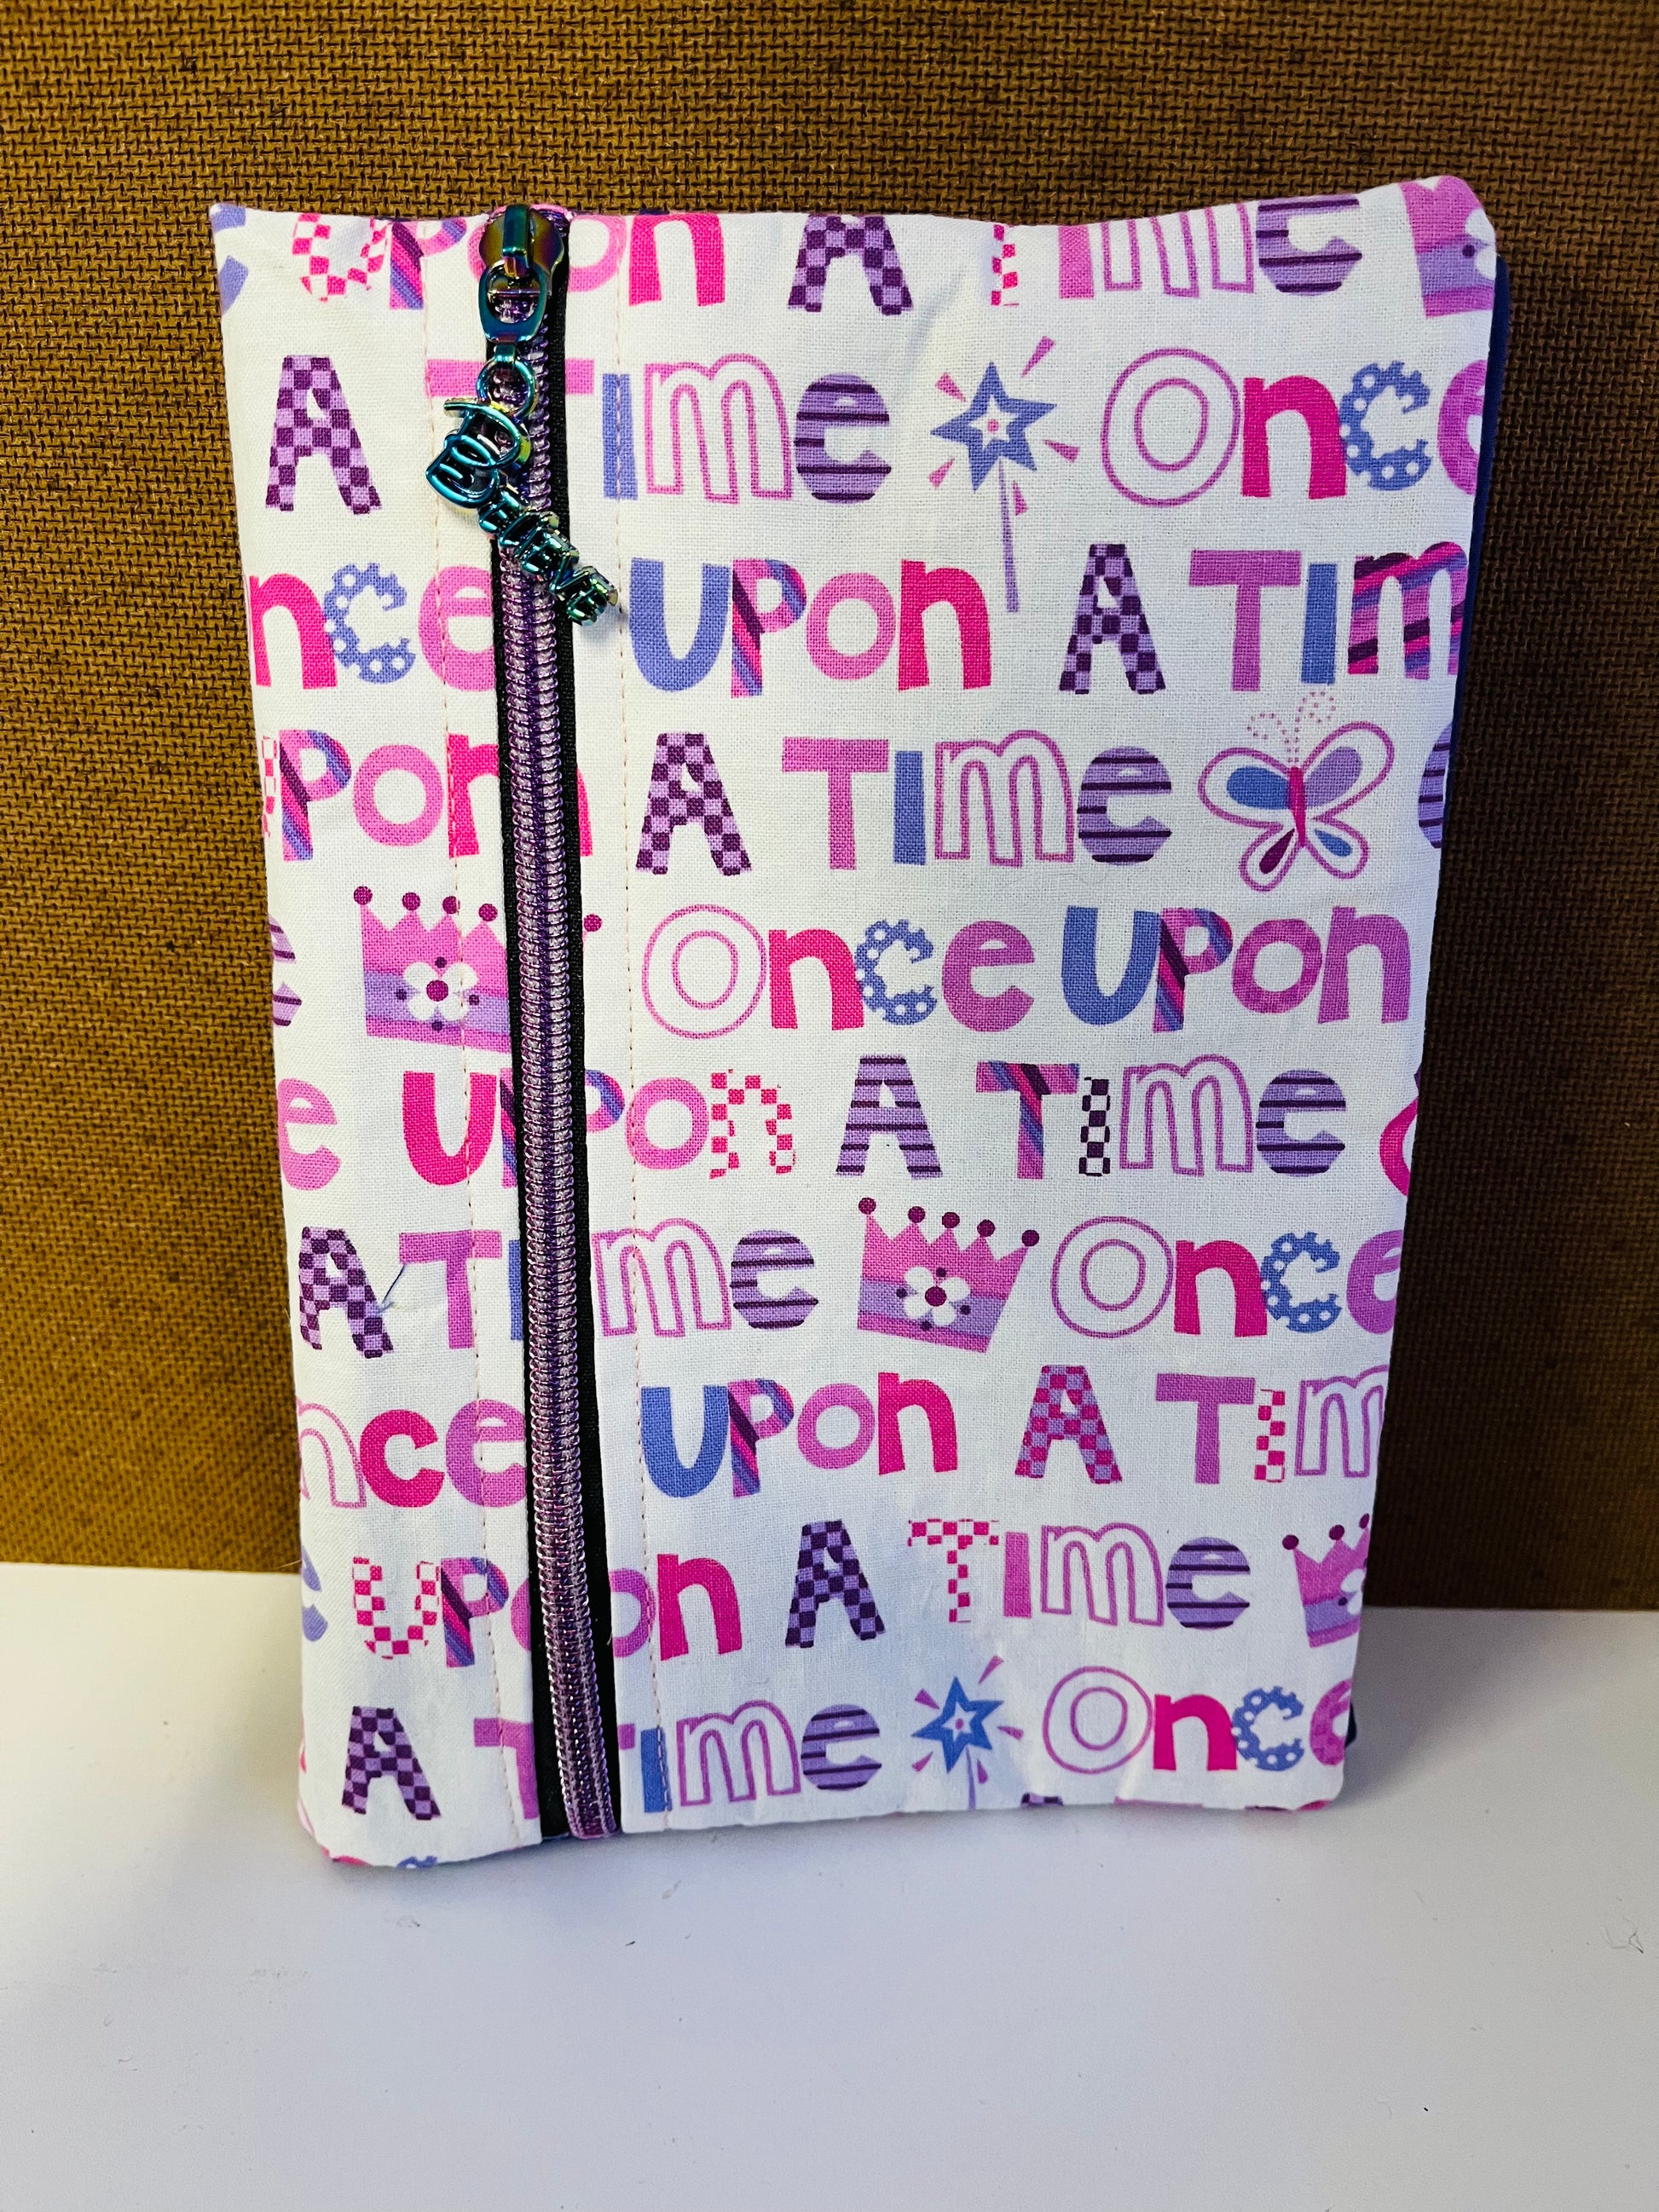 upon A Time
A Time Once
nce upon A Tim
upon A Time
Once upon
e upon A Time
A Time Once
nce upon A Tim
upon A Time
A Time Once